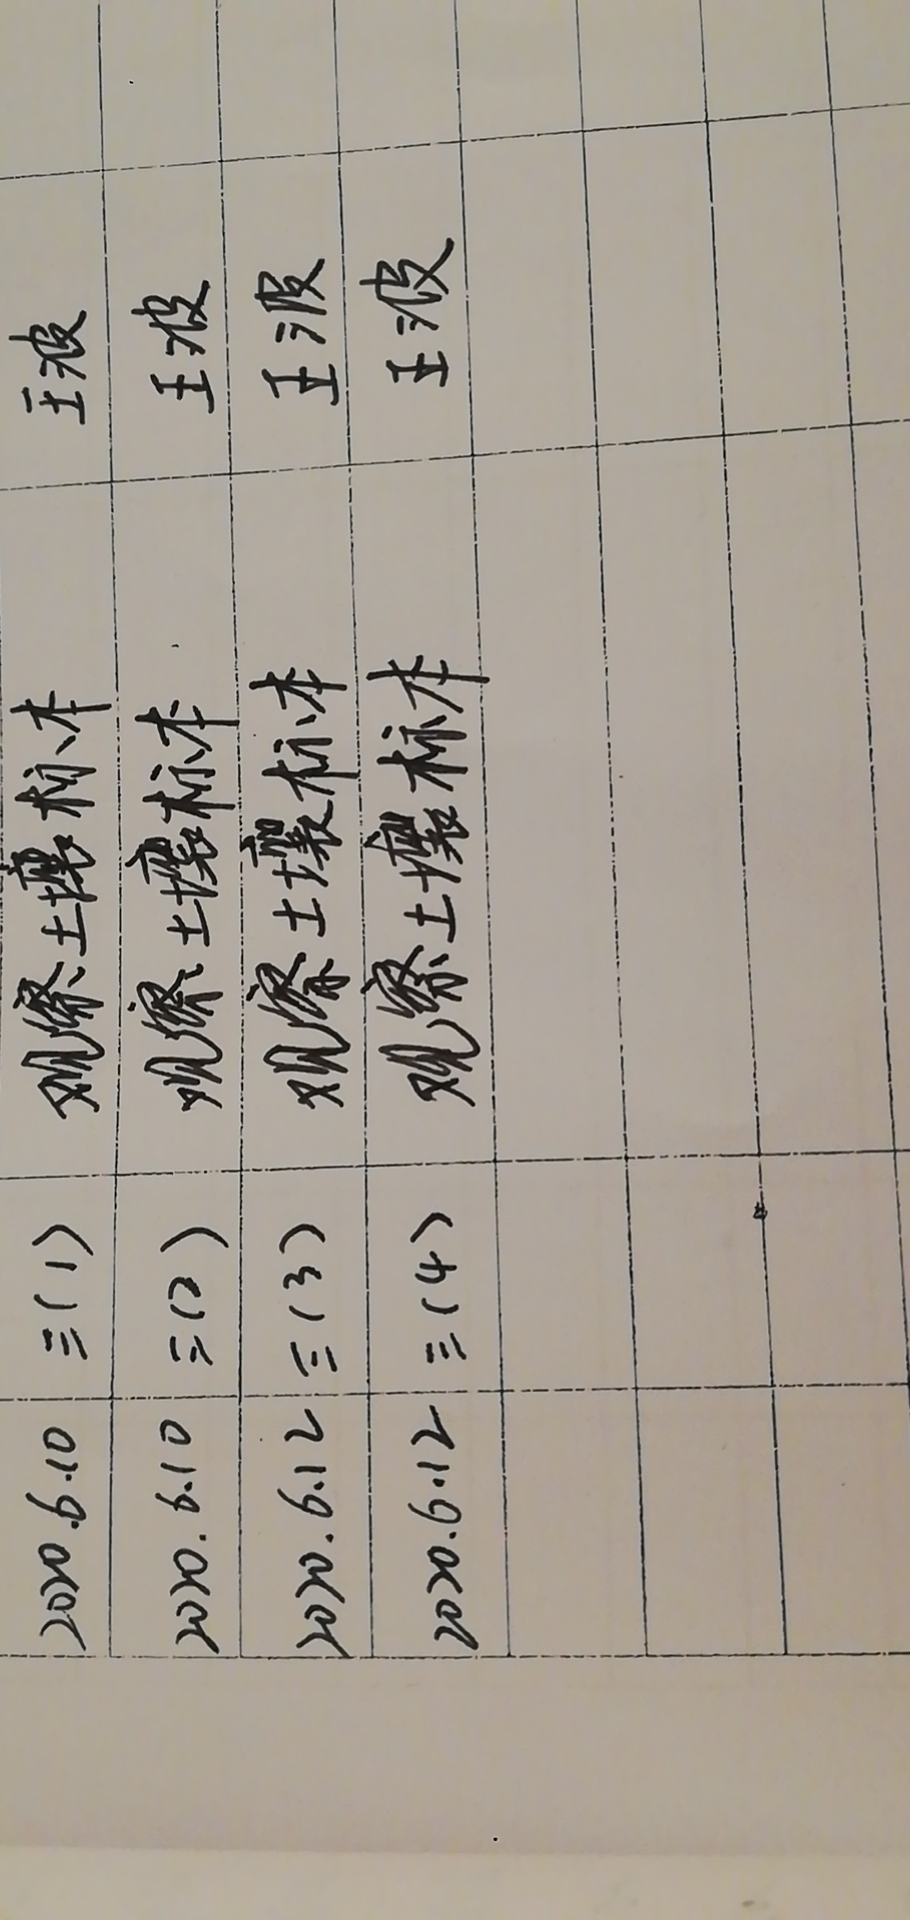 2020.6.10 三(1) 观察土壤标本 王波
2020.6.10 三(2) 观察土壤标本 王波
2020.6.12 三(3) 观察土壤标本 王波
2020.6.12 三(4) 观察土壤标本 王波